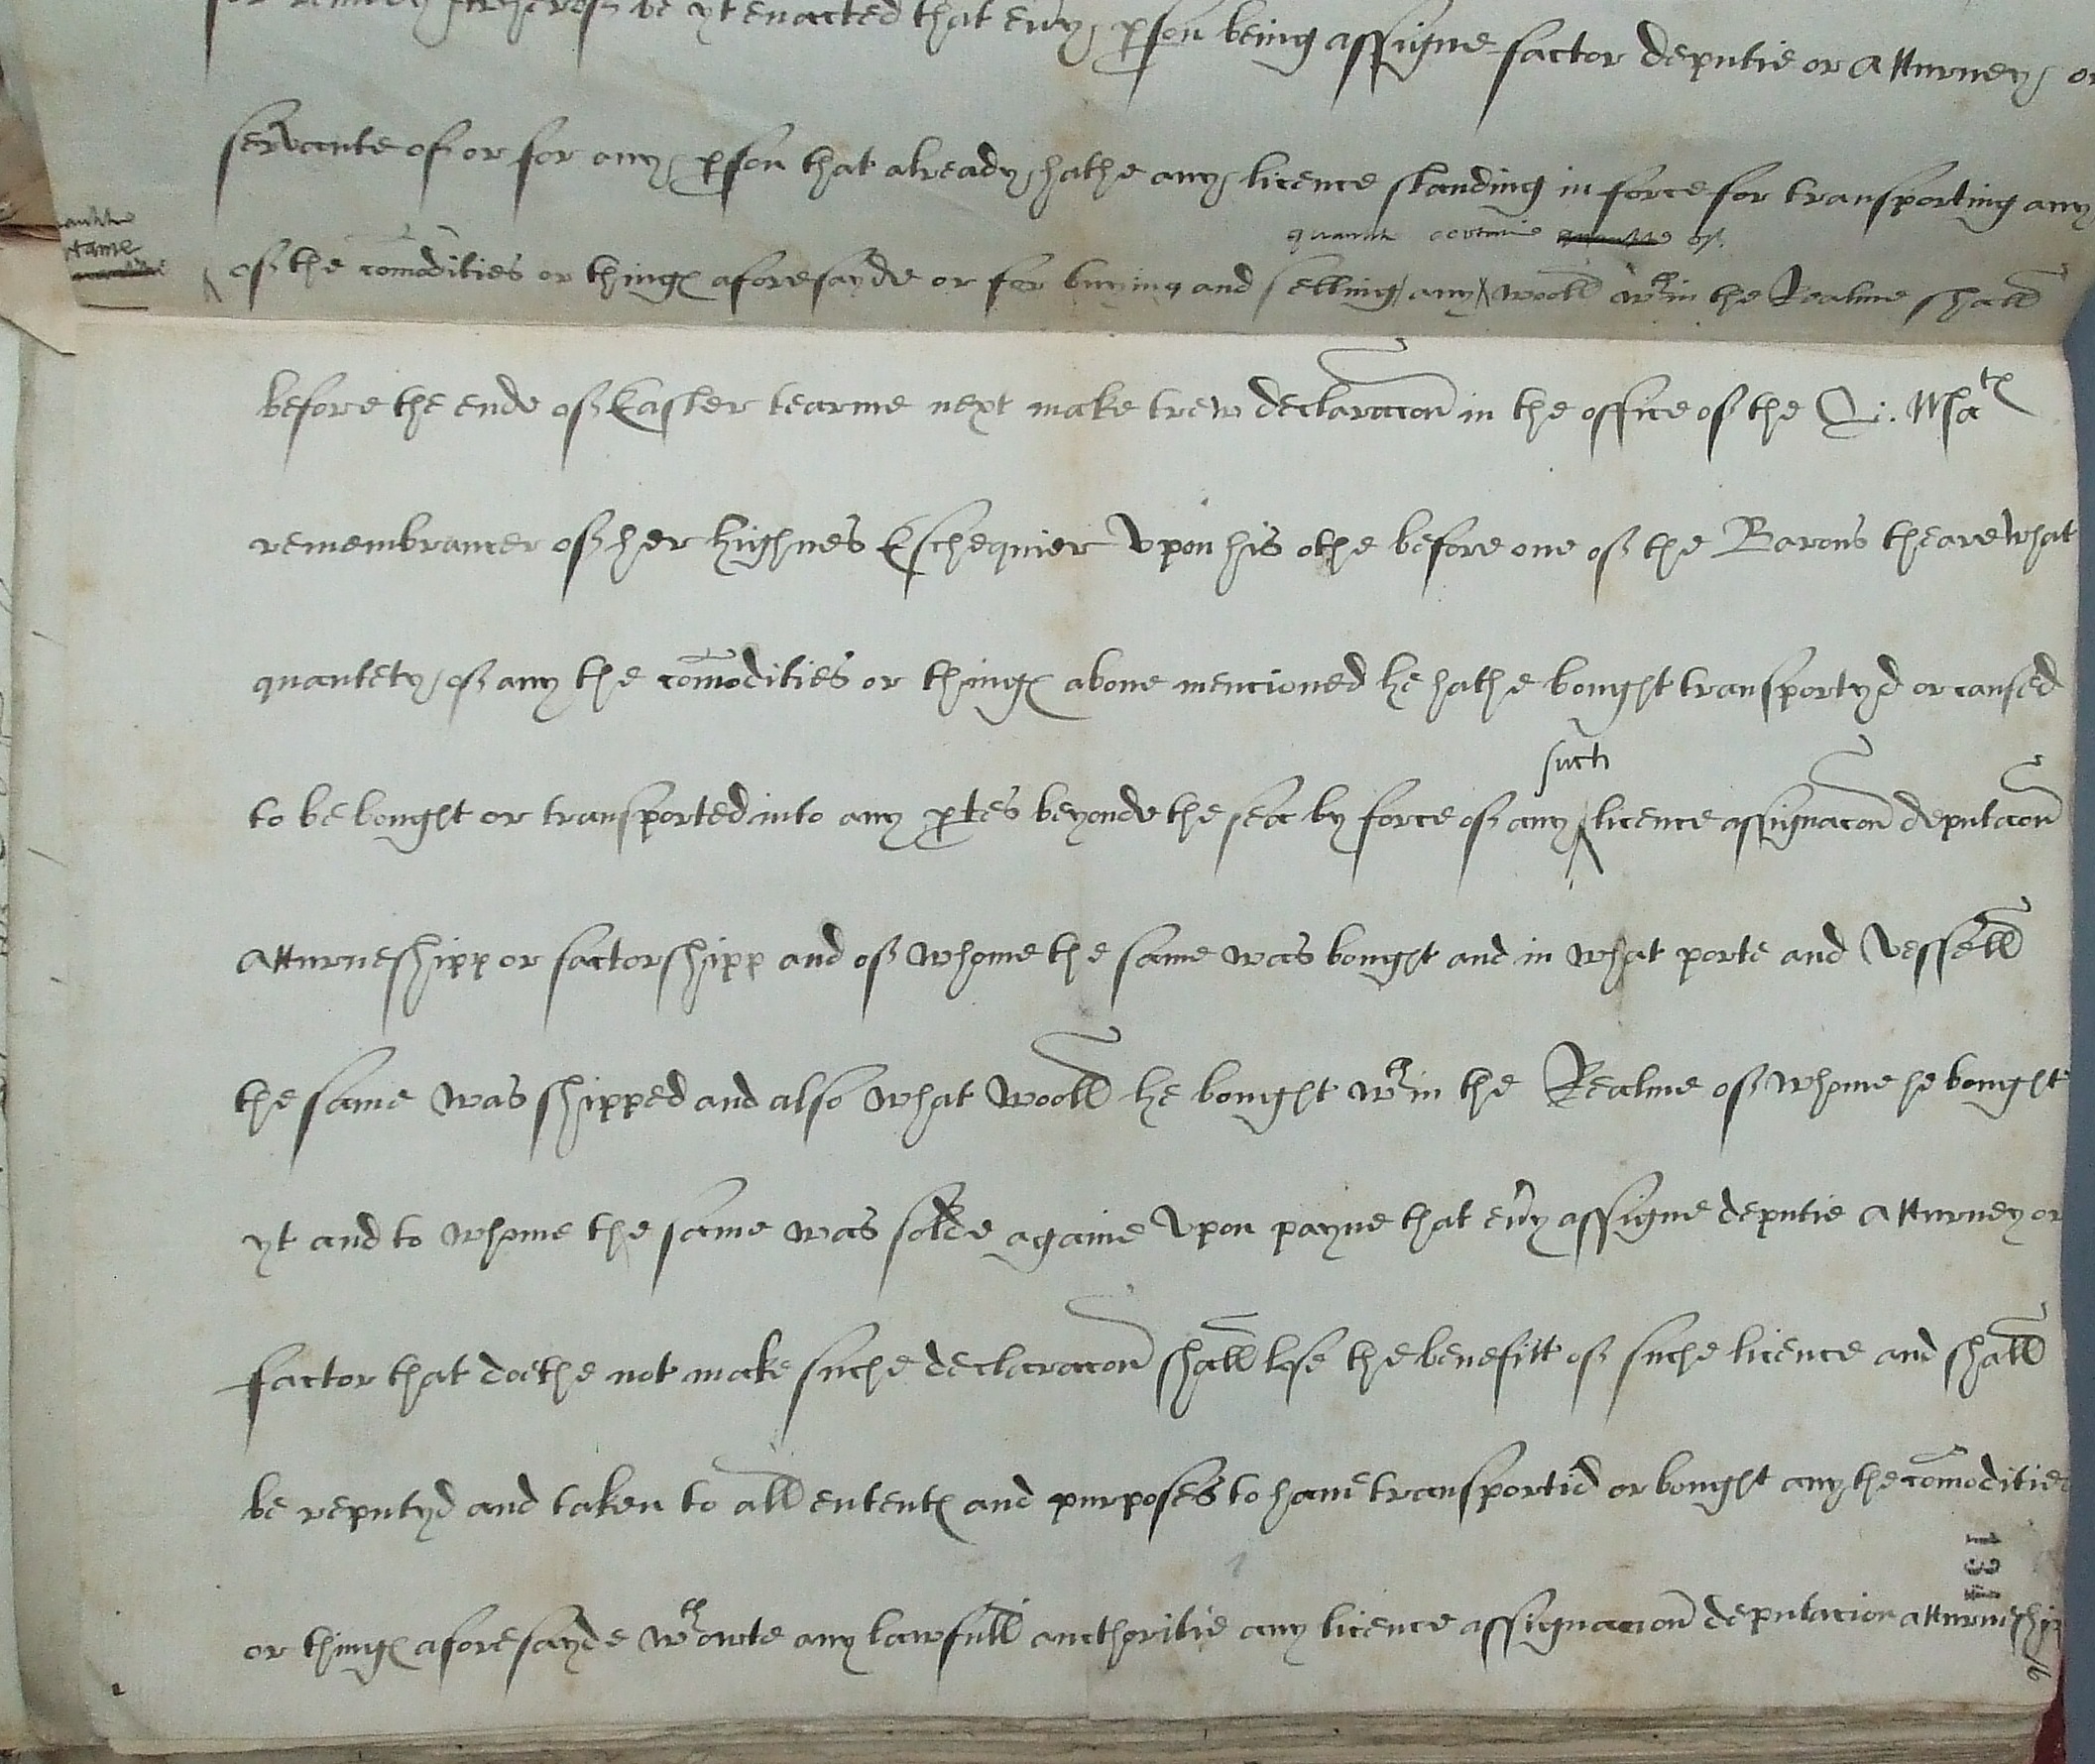 for remedy whereof be yt enacted that eu'y p'son being assigne factor deputie or Atturney or
servante of or for any p'son that already hathe any licence standing in force for transporting any
certaine quantite of
of the com̄odities or thinges aforesayde or for buying and selling any wooll wth in the Realme shall
before the ende of Easter tearme next make trew declaracon in the office of the Q. Matꝭ
remembrancer of her highnes Eschequier Vpon his othe before one of the Barons theare what
quantety of any the com̄odities or thingꝭ aboue mencioned he hathe bought transportyd or caused
such
to be bought or transported into any ꝑtes beyonde the sea by force of any licence assignacon deputacon
Atturneshipp or factorshipp and of whome the same was bought and in what porte and Vessell
the same was shipped and also what wooll he bought wth in the Realme of whome he bought
yt and to whome the same was solde againe Vpon payne that eu'y assigne deputie Atturney or
factor that doethe not make suche declaracon shall lose the benefitt of suche licence and shall
be reputyd and taken to all ententꝭ and purposes to haue transportid or bought any the com̄odities
or thingꝭ aforesayde wth owte any lawfull aucthoritie any licence assignacion deputacion atturneship